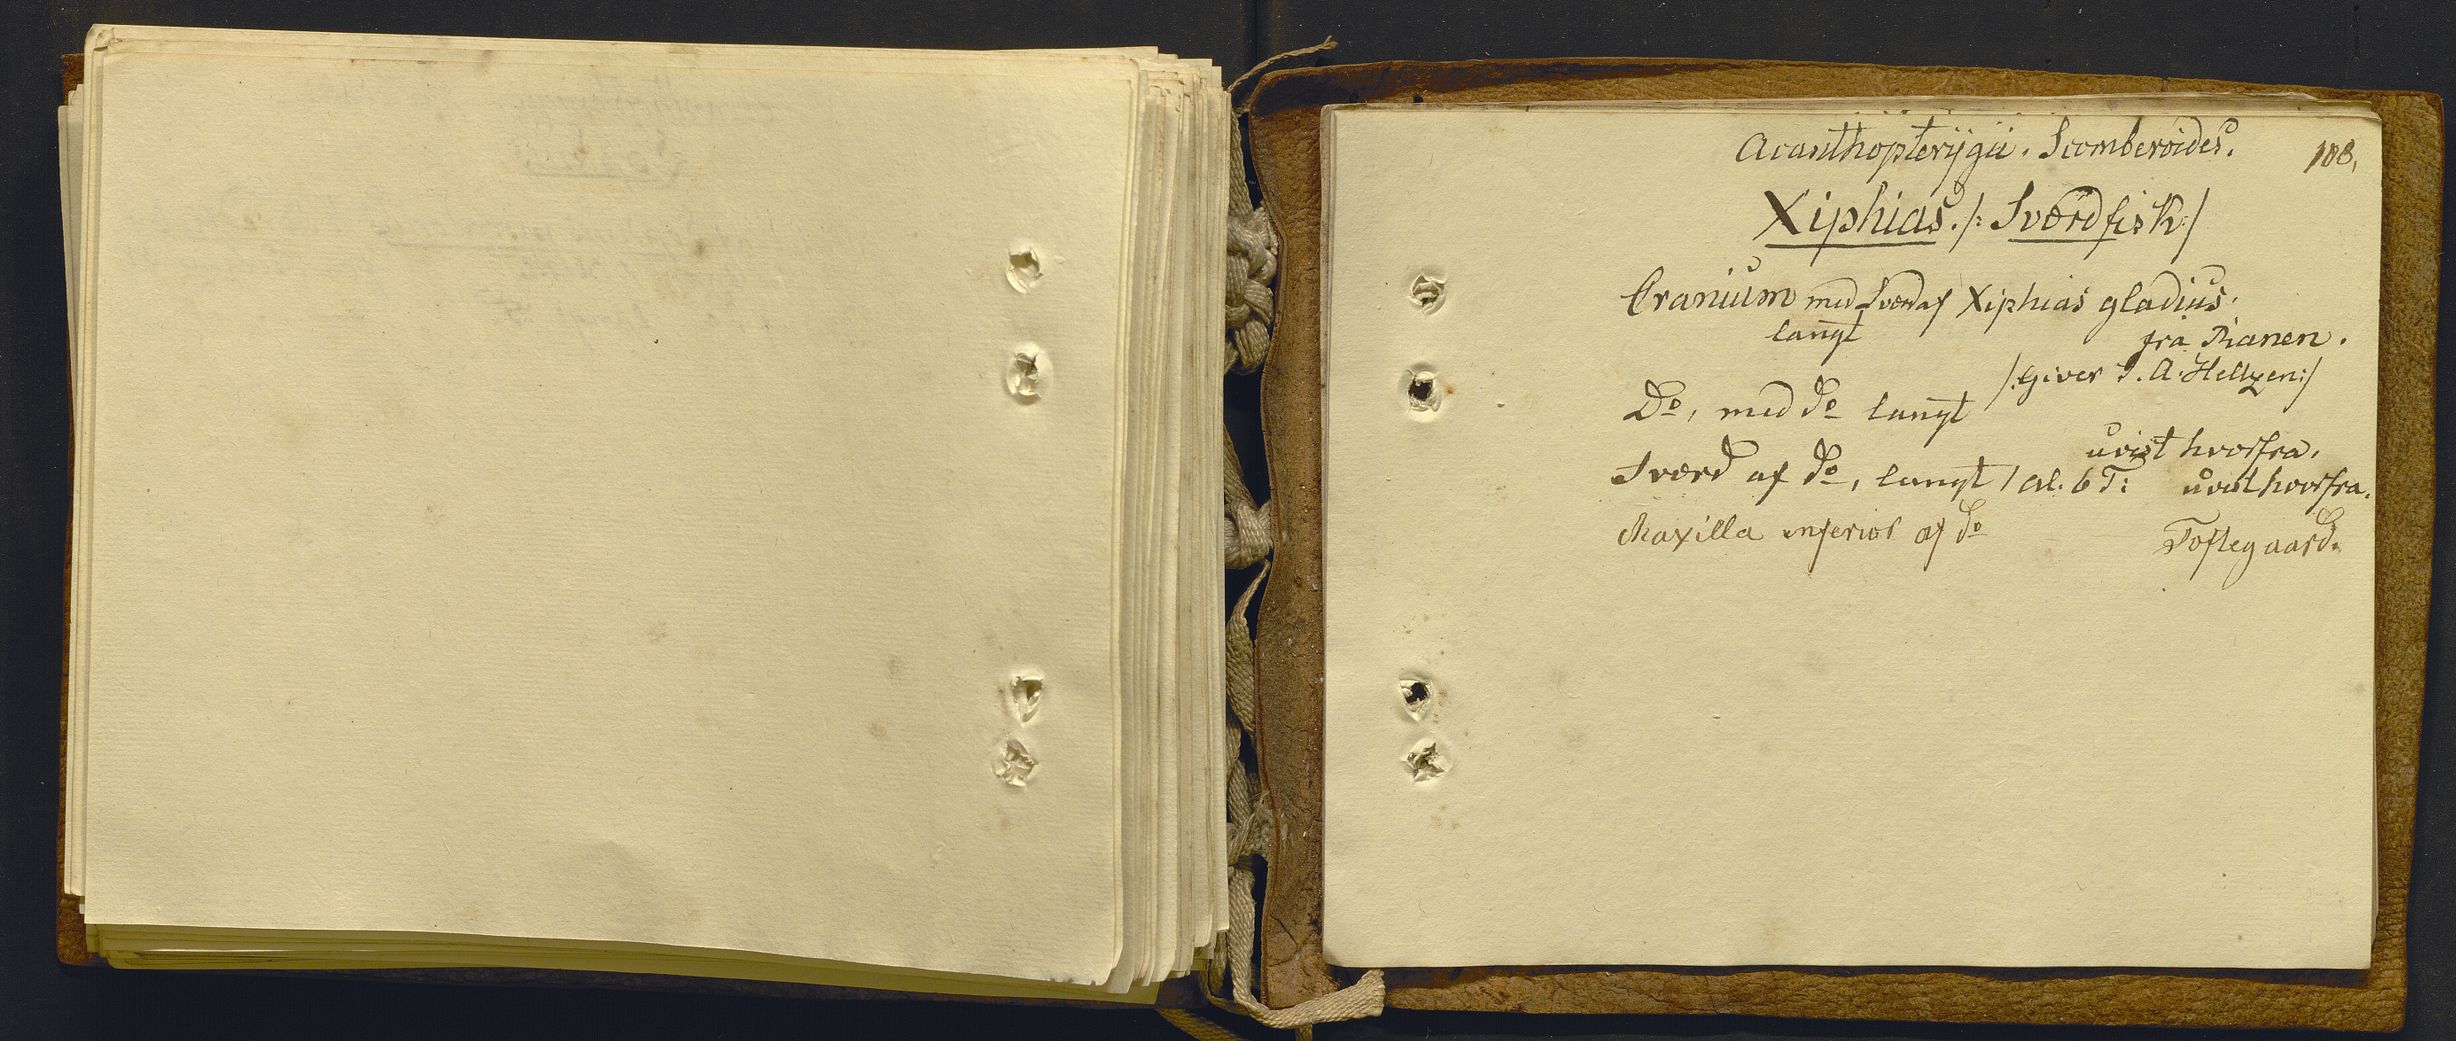 Acanthopterÿgii. Scomberoides. 108,
Xiphias. /: Sværdfisk:/
Cranium med Sværd af Xiphias gladius,
langt fra Ranen.
/:Giver S. A. Heltzen:/
Do, med do langt
uvist hvorfra,
Sværd af do, langt 1 al. 6 T: uvist hvorfra,
Maxilla inferior af do Toftegaard.